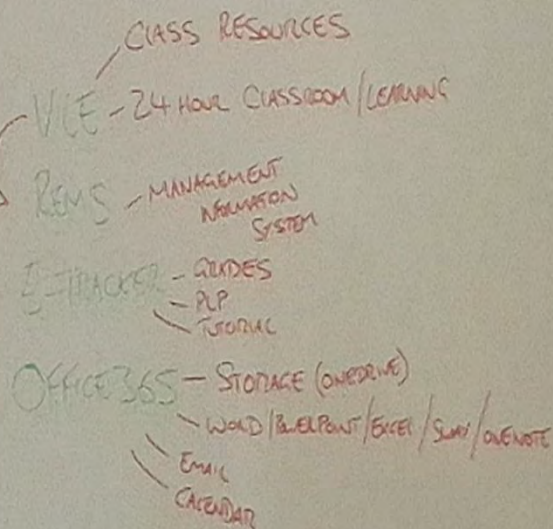 CLASS RESOURCES
VLE - 24 HOUR CLASSROOM/LEARNING
REMS - MANAGEMENT
INFORMATION
SYSTEM
E-TRACKER - GRADES
- PLP
- TUTORIAL
OFFICE365 - STORAGE (ONEDRIVE)
- WORD/POWERPOINT/EXCEL/SWAY/ONENOTE
EMAIL
CALENDAR